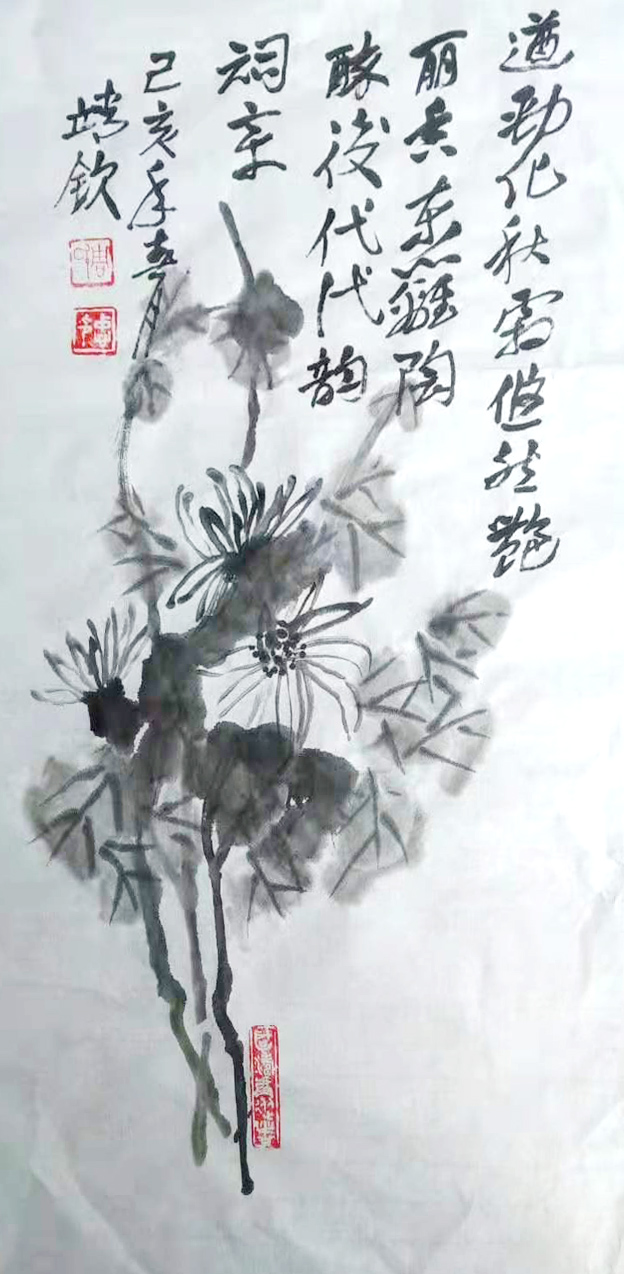 遒劲化秋霜悠然艳
丽香东篱陶
酥後代代韵
词章
己亥年春月
靖钦